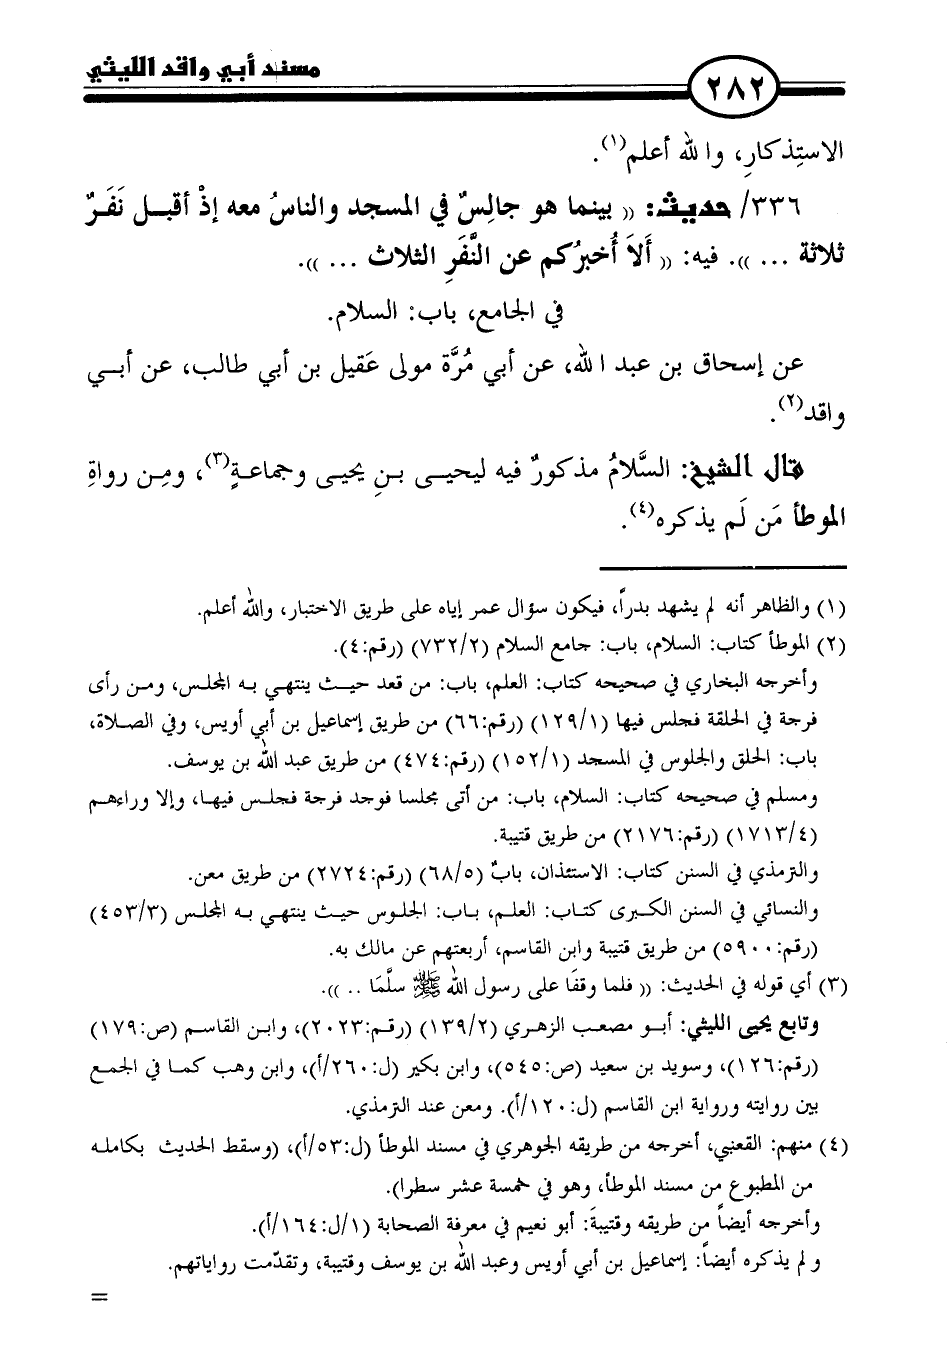 مسند أبي واقد الليثي
٢٨٢
الاستِذكارِ، والله أعلم(١).
٣٣٦/ حديث: « بينما هو جالِسٌ في المسجد والناسُ معه إذْ أقبل نَفَرٌ
ثلاثة ... ». فيه: « أَلاَ أُخبرُكم عن النَّفَرِ الثلاث ... ».
في الجامع، باب: السلام.
عن إسحاق بن عبد الله، عن أبي مُرَّة مولى عَقيل بن أبي طالب، عن أبي
واقد(٢).
قال الشيخ: السَّلامُ مذكورٌ فيه ليحيى بنِ يحيى وجماعةٍ(٣)، ومِن رواةِ
الموطأ مَن لَم يذكره(٤).
(١) والظاهر أنه لم يشهد بدراً، فيكون سؤال عمر إياه على طريق الاختبار، والله أعلم.
(٢) الموطأ كتاب: السلام، باب: جامع السلام (٧٣٢/٢) (رقم:٤).
وأخرجه البخاري في صحيحه كتاب: العلم، باب: من قعد حيث ينتهي به المجلس، ومن رأى
فرجة في الحلقة فجلس فيها (١٢٩/١) (رقم:٦٦) من طريق إسماعيل بن أبي أويس، وفي الصلاة،
باب: الحلق والجلوس في المسجد (١٥٢/١) (رقم:٤٧٤) من طريق عبد الله بن يوسف.
ومسلم في صحيحه كتاب: السلام، باب: من أتى مجلسا فوجد فرجة فجلس فيها، وإلا وراءهم
(١٧١٣/٤) (رقم:٢١٧٦) من طريق قتيبة.
والترمذي في السنن كتاب: الاستئذان، بابٌ (٦٨/٥) (رقم:٢٧٢٤) من طريق معن.
والنسائي في السنن الكبرى كتاب: العلم، باب: الجلوس حيث ينتهي به المجلس (٤٥٣/٣)
(رقم:٥٩٠٠) من طريق قتيبة وابن القاسم، أربعتهم عن مالك به.
(٣) أي قوله في الحديث: « فلما وقفَا على رسول الله ﷺ سلَّمَا .. ».
وتابع يحيى الليثي: أبو مصعب الزهري (١٣٩/٢) (رقم:٢٠٢٣)، وابن القاسم (ص:١٧٩)
(رقم:١٢٦)، وسويد بن سعيد (ص:٥٤٥)، وابن بكير (ل:٢٦٠/أ)، وابن وهب كما في الجمع
بين روايته ورواية ابن القاسم (ل:١٢٠/أ). ومعن عند الترمذي.
(٤) منهم: القعنبي، أخرجه من طريقه الجوهري في مسند الموطأ (ل:٥٣/أ)، (وسقط الحديث بكامله
من المطبوع من مسند الموطأ، وهو في خمسة عشر سطرا).
وأخرجه أيضاً من طريقه وقتيبةَ: أبو نعيم في معرفة الصحابة (١/ل:١٦٤/أ).
ولم يذكره أيضاً: إسماعيل بن أبي أويس وعبد الله بن يوسف وقتيبة، وتقدّمت رواياتهم.
=